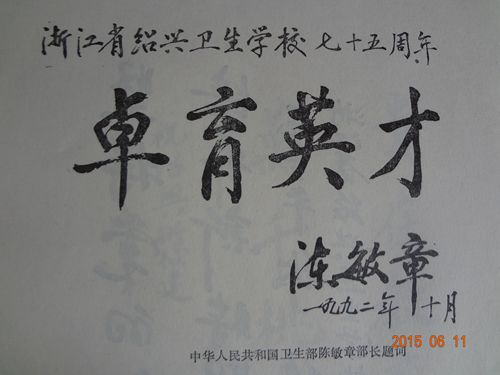 浙江省绍兴卫生学校七十五周年
卓育英才
陈敏章
一九九二年十月
2015 06 11
中华人民共和国卫生部陈敏章部长题词